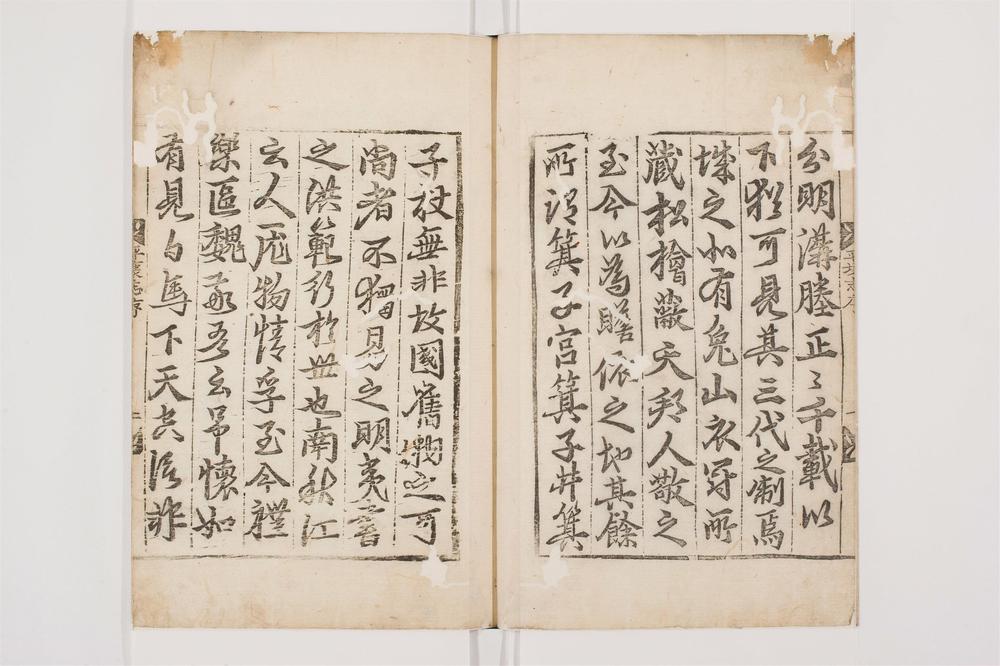 分明溝塍正〻千載以
下猶可見其三代之制焉
城之北有兔山衣冠所
藏松檜蔽天邦人敬之
至今以為瞻依之地其餘
所謂箕子宮箕子井箕
子杖無非故國舊物之可
尚者不獨易之明夷書
之洪範行於世也南秋江
云人厖物情孚至今禮
樂區魏
吾云吊懷如
有見白馬下天
非